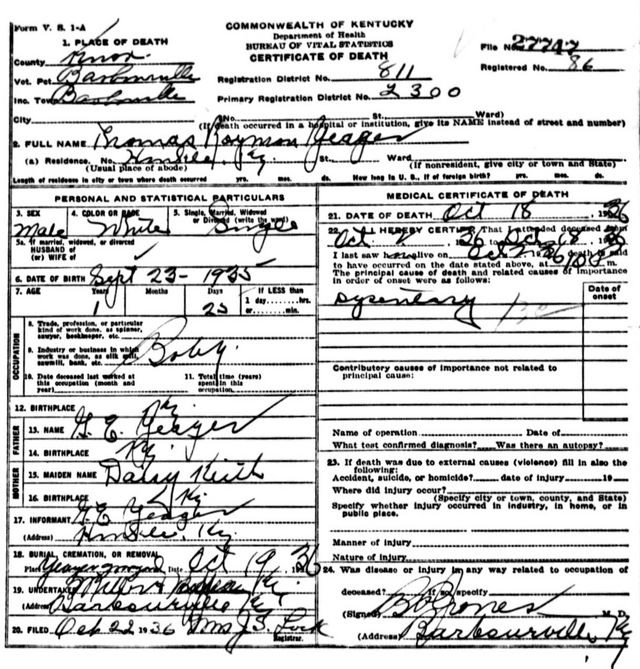 Form V. S. 1-A
COMMONWEALTH OF KENTUCKY
Department of Health
BUREAU OF VITAL STATISTICS
CERTIFICATE OF DEATH
File No. 27747
Registered No. 86
1. PLACE OF DEATH
County Knox
Vot. Pct. Barbourville
Inc. Town Barbourville
City
Registration District No. 811
Primary Registration District No. 2300
(No. St. Ward)
(If death occurred in a hospital or institution, give its NAME instead of street and number)
2. FULL NAME Thomas Raymon Yeager
(a) Residence. No. Ky. St. Ward
(Usual place of abode) (If nonresident, give city or town and State)
Length of residence in city or town where death occurred yrs. mos. ds. How long in U. S., if of foreign birth? yrs. mos. ds.
PERSONAL AND STATISTICAL PARTICULARS
3. SEX Male
4. COLOR OR RACE White
5. Single, Married, Widowed or Divorced (write the word) Single
5a. If married, widowed, or divorced
HUSBAND of
(or) WIFE of
6. DATE OF BIRTH Sept 23-1935
7. AGE Years 1 Months Days 25
If LESS than
1 day......hrs.
or......min.
OCCUPATION
8. Trade, profession, or particular
kind of work done, as spinner,
sawyer, bookkeeper, etc.
9. Industry or business in which
work was done, as silk mill,
sawmill, bank, etc.
Baby
10. Date deceased last worked at
this occupation (month and
year)
11. Total time (years)
spent in this
occupation
12. BIRTHPLACE Ky
FATHER
13. NAME G. E. Yeager
14. BIRTHPLACE Ky.
MOTHER
15. MAIDEN NAME Daisy Keith
16. BIRTHPLACE Ky.
17. INFORMANT G E Yeager
(Address) Ky.
18. BURIAL, CREMATION, OR REMOVAL
Place Date Oct 19 1936
19. UNDERTAKER
(Address) Barbourville Ky
20. FILED Oct 22 1936 Mrs J. S. Lock
Registrar.
MEDICAL CERTIFICATE OF DEATH
21. DATE OF DEATH Oct 18 1936
22. I HEREBY CERTIFY, That I attended deceased from
Oct 36 to Oct 18 36
I last saw h alive on Oct 36 death is said
to have occurred on the date stated above, at m.
The principal cause of death and related causes of importance
in order of onset were as follows:
Date of
onset
Dysentary
Contributory causes of importance not related to
principal cause:
Name of operation Date of
What test confirmed diagnosis? Was there an autopsy?
23. If death was due to external causes (violence) fill in also the
following:
Accident, suicide, or homicide? date of injury 19
Where did injury occur?
(Specify city or town, county, and State)
Specify whether injury occurred in industry, in home, or in
public place.
Manner of injury
Nature of injury
24. Was disease or injury in any way related to occupation of
deceased? If so, specify
(Signed) Jones M. D.
(Address) Barbourville Ky